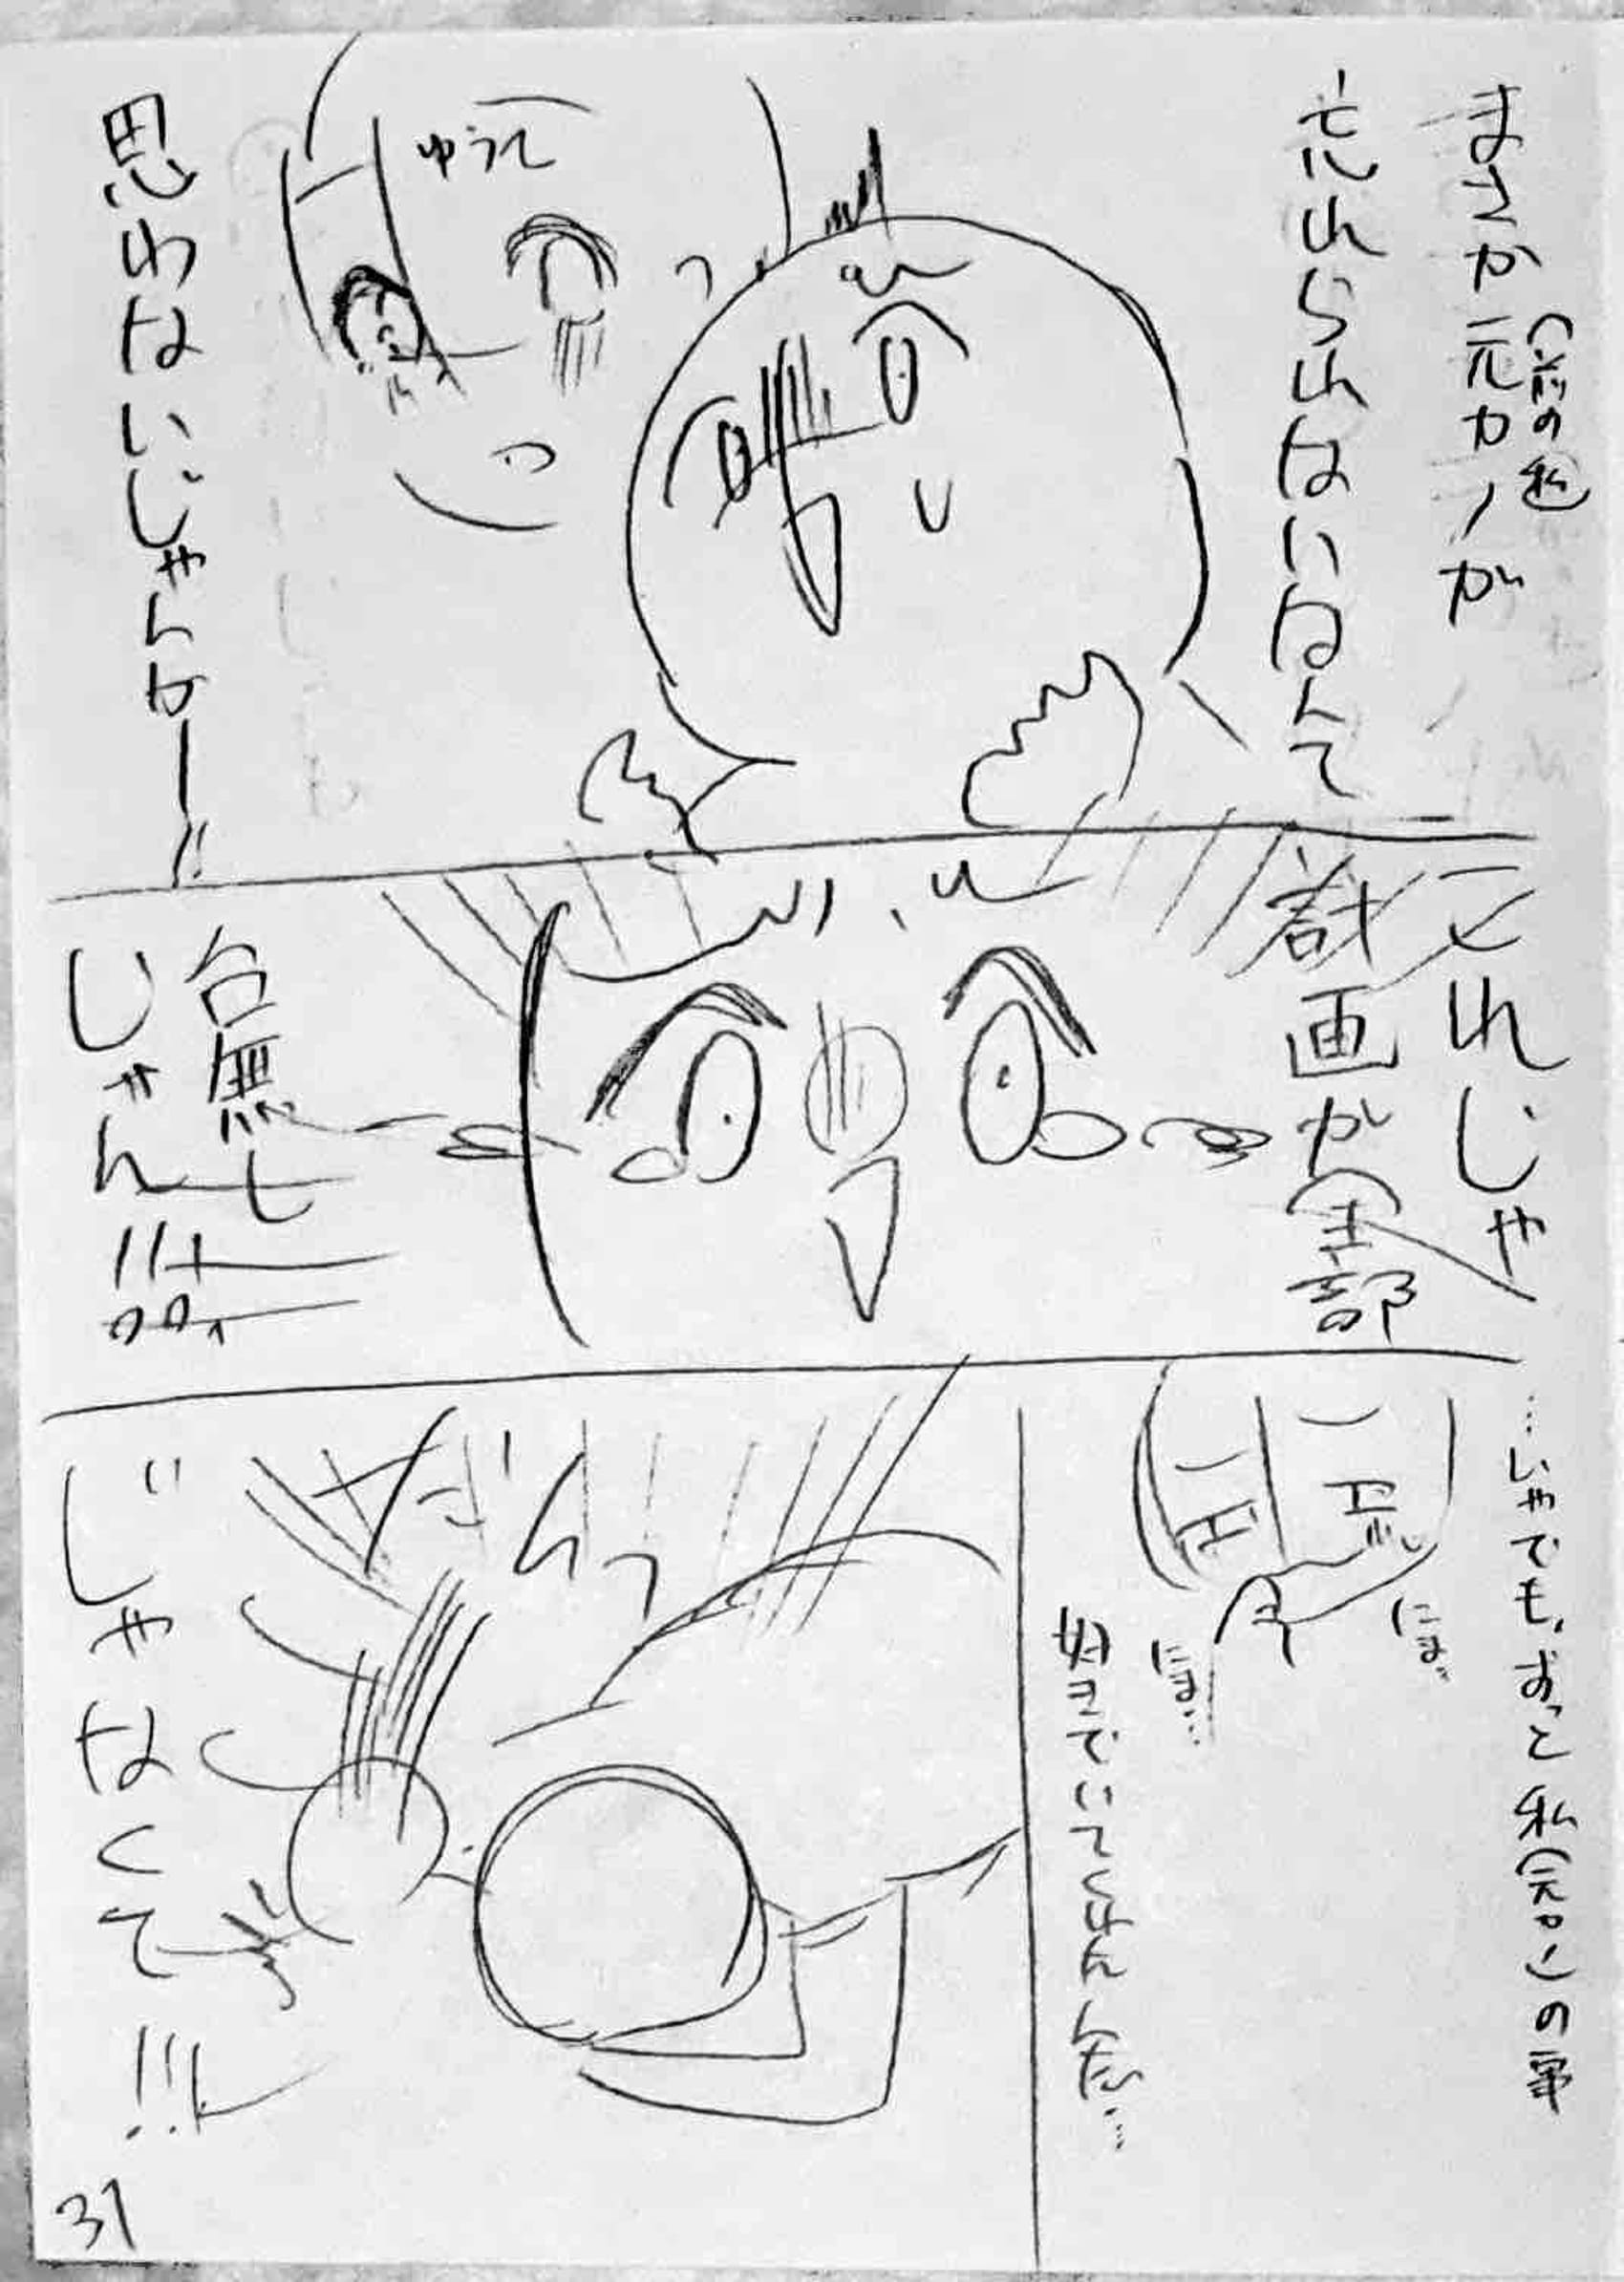 まさか元カノが
(前の私)
忘れられないなんて
ゆうれ
思わないじゃんかー!!
これじゃ
計画が全部
台無し
じゃん!!
…いやでも、ずっと私(元カノ)の事
好きでいてくれたんだ…
にま
にま…
だんっ
じゃなくて!!!
31